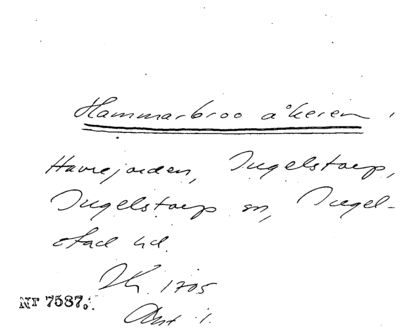 Hammarbroo åkeren
Havrejorden, Ingelstorp,
Ingelstorp sn, Ingel-
stad hd.
1705
NT 7587.